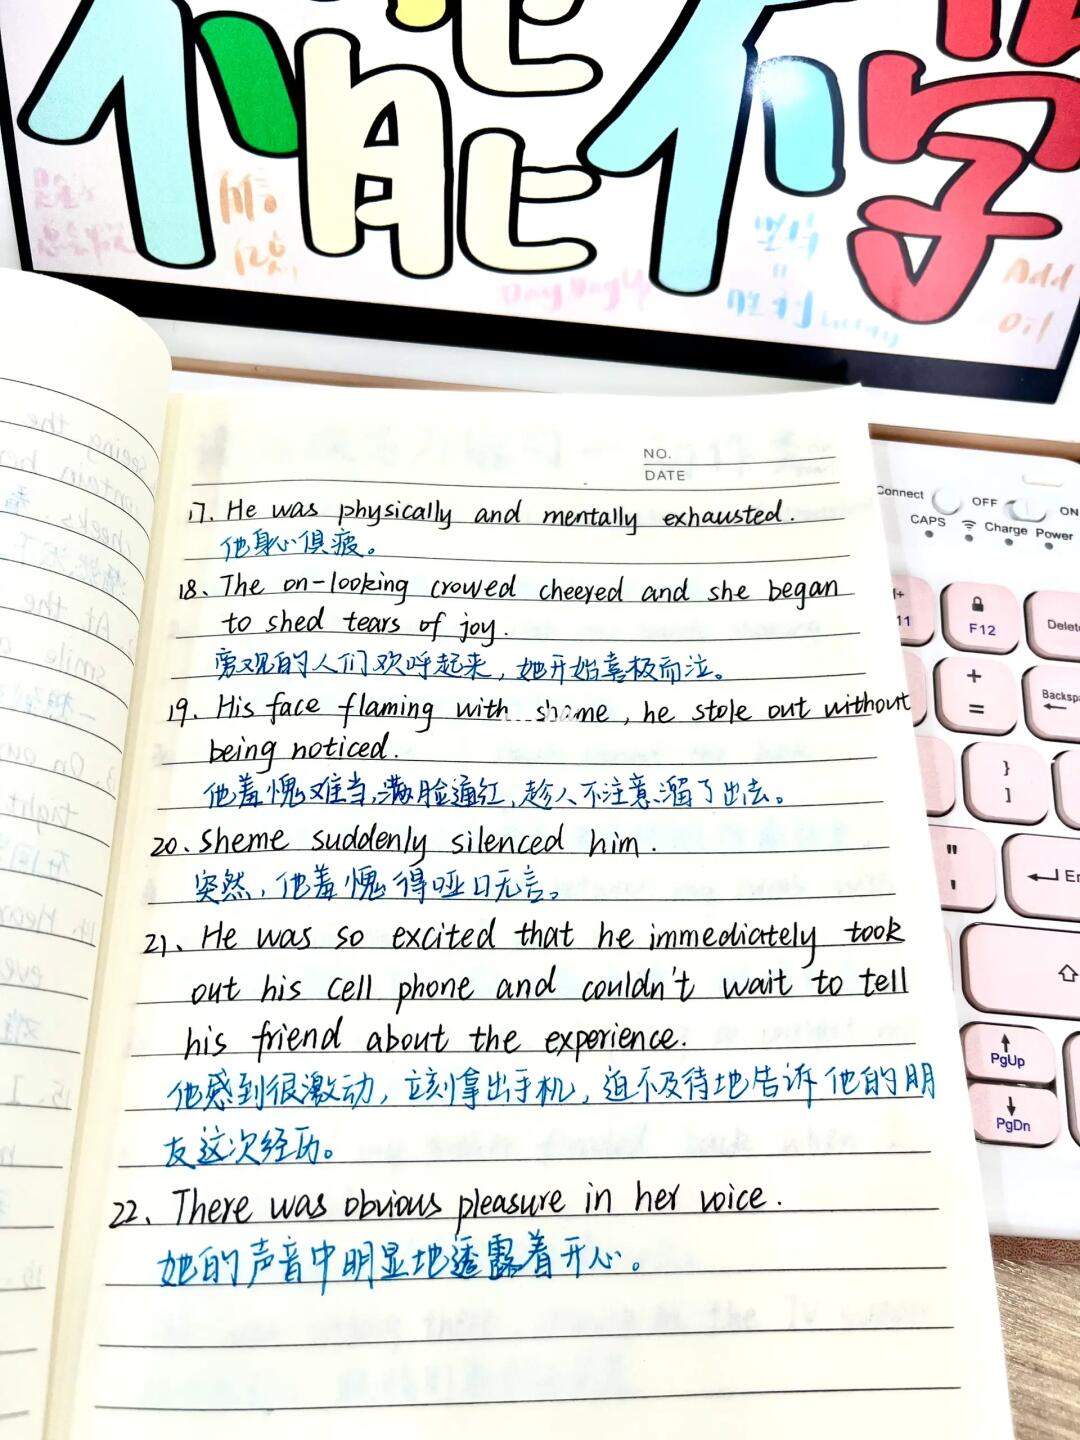 能不学
Day Day Up
Add
Oil
NO.
DATE
17. He was physically and mentally exhausted.
他身心俱疲。
18、The on-looking crowed cheered and she began
to shed tears of joy.
旁观的人们欢呼起来，她开始喜极而泣。
19. His face flaming with shame, he stole out without
being noticed.
他羞愧难当,满脸通红,趁人不注意溜了出去。
20、Sheme suddenly silenced him.
突然，他羞愧得哑口无言。
21、He was so excited that he immediately took
out his cell phone and couldn't wait to tell
his friend about the experience.
他感到很激动，立刻拿出手机，迫不及待地告诉他的朋
友这次经历。
22、There was obvious pleasure in her voice.
她的声音中明显地透露着开心。
Connect
OFF
ON
CAPS
Charge
Power
11
F12
Delete
+
=
Backspa
}
]
"
'
En
PgUp
PgDn